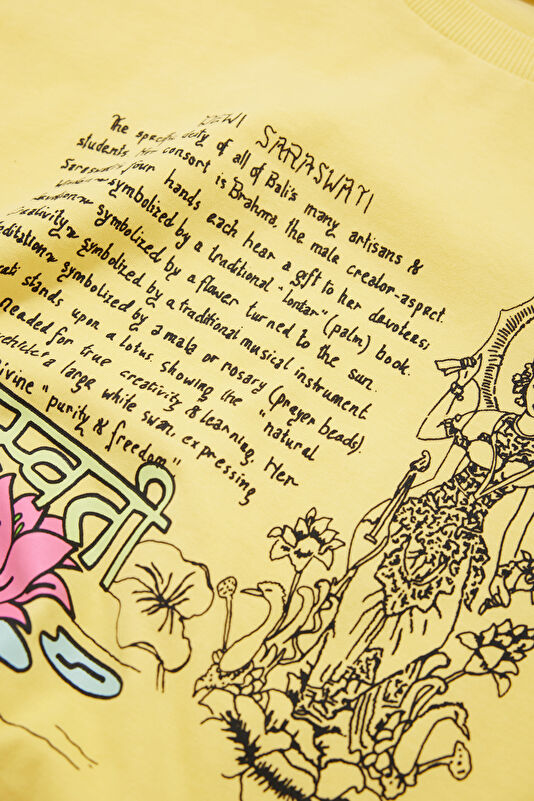 DEWI
SARASWATI
The specific duty of all of Bali's many artisans &
students. Her consort is Brahma, the male creator-aspect.
Saraswati's four hands each hear a gift to her devotees;
~ symbolized by a traditional "lontar" (palm) book.
~ symbolized by a flower turned to the sun.
creativity ~ symbolized by a traditional musical instrument
meditation ~ symbolized by a mala or rosary (prayer beads).
stands upon a lotus, showing the "natural
needed for true creativity & learning. Her
vehicle's a large white swan, expressing
divine "purity & freedom"
स्वती